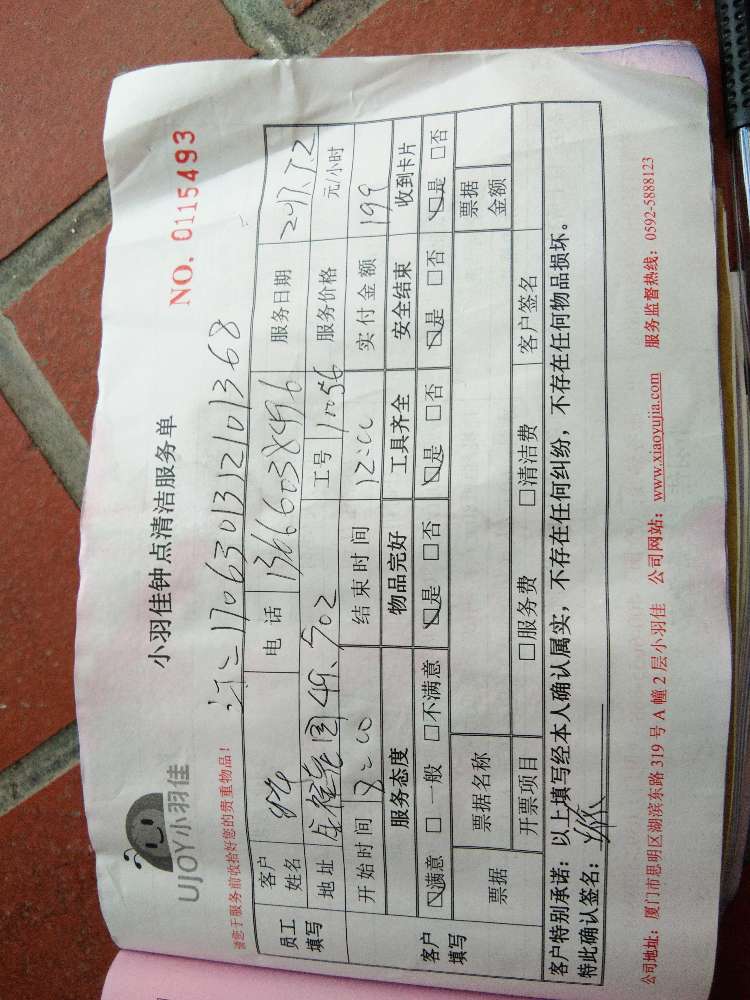 UJOY小羽佳
小羽佳钟点清洁服务单
NO. 0115493
请您于服务前收拾好您的贵重物品!
1706301312101368
员工填写 客户姓名 电话 13666038496 服务日期 2017.7.2
地址 花园49、702 工号 1056 服务价格 元/小时
开始时间 8:00 结束时间 12:00 实付金额 199
客户填写 服务态度 物品完好 工具齐全 安全结束 收到卡片
☑满意 □一般 □不满意 ☑是 □否 ☑是 □否 ☑是 □否 ☑是 □否
票据 票据名称 票据金额
开票项目 □服务费 □清洁费 客户签名
客户特别承诺:以上填写经本人确认属实,不存在任何纠纷,不存在任何物品损坏。
特此确认签名:
公司地址:厦门市思明区湖滨东路319号A幢2层小羽佳 公司网站:www.xiaoyujia.com 服务监督热线:0592-5888123